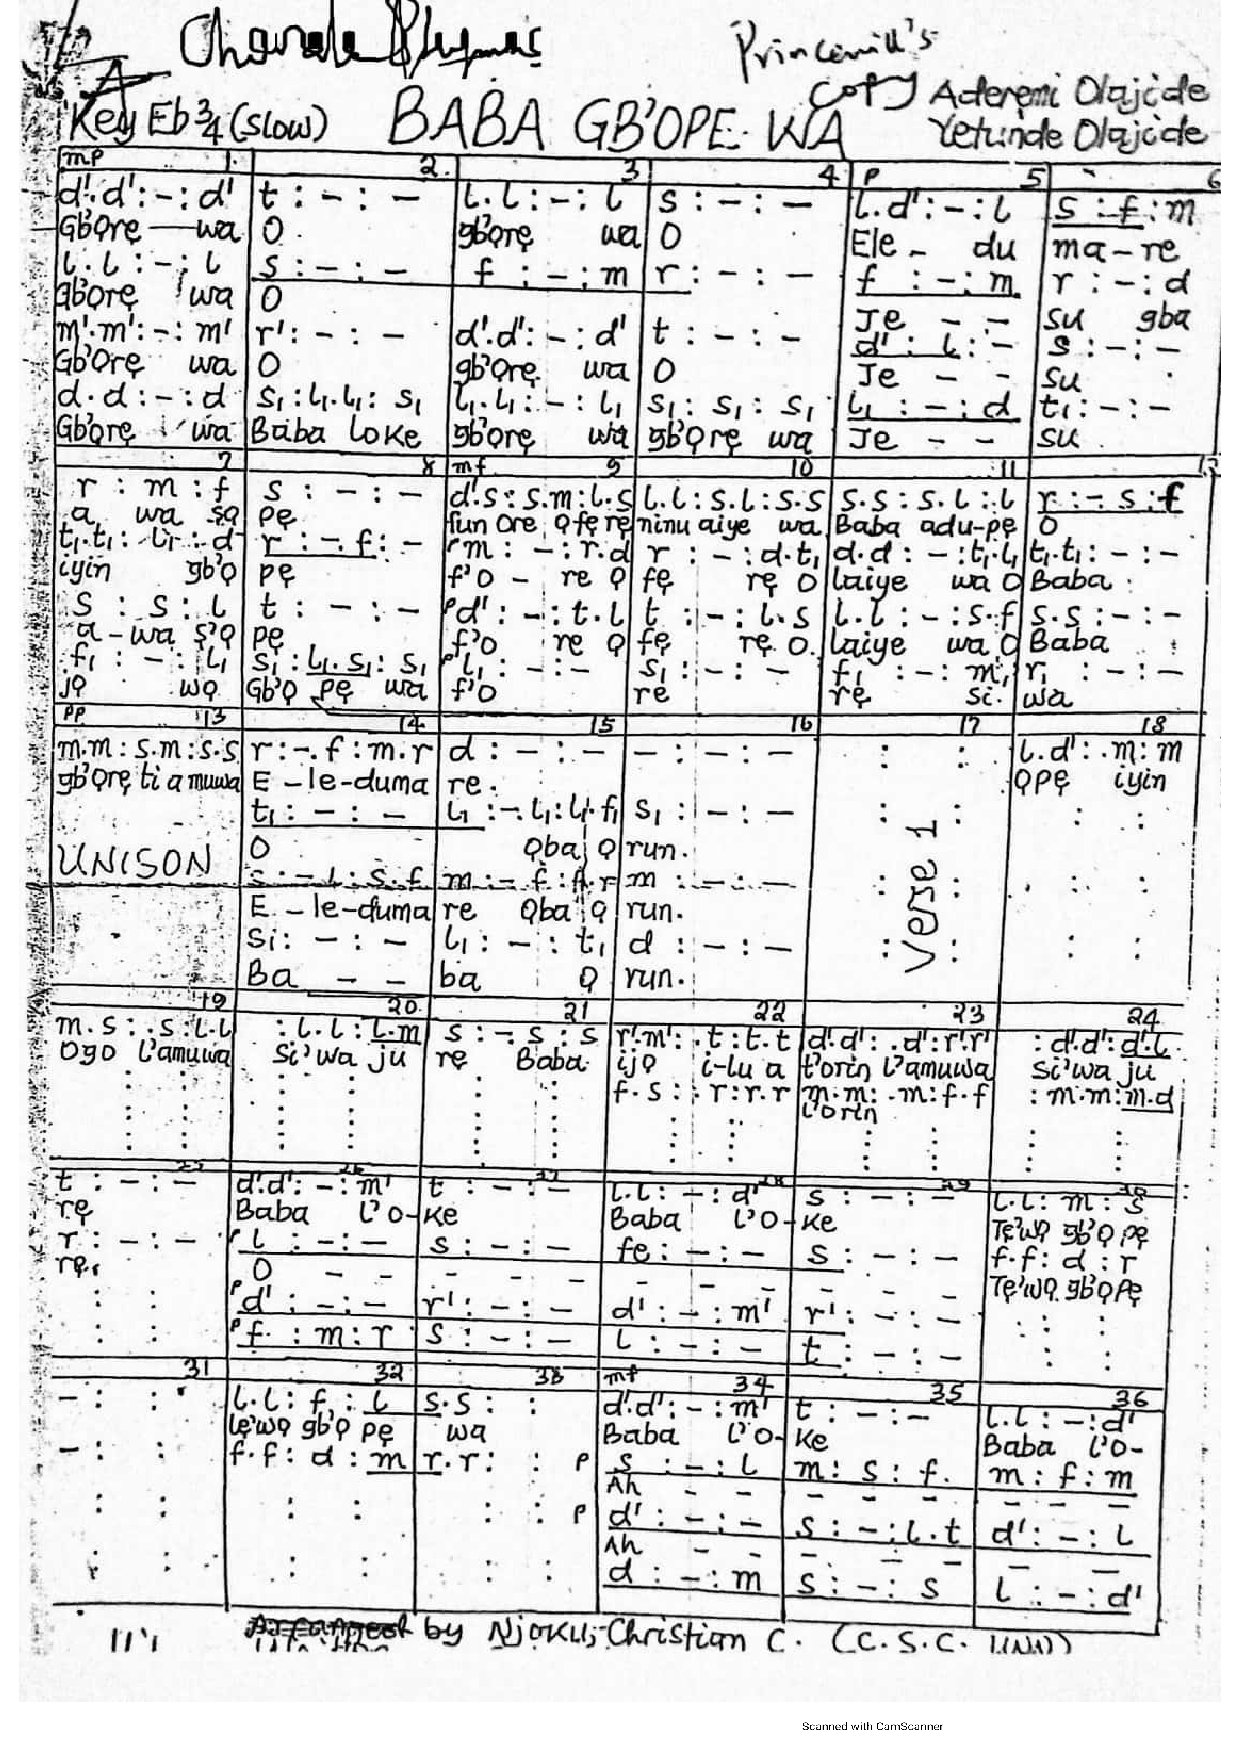 Princewill's
copy Aderemi Olajide
Key Eb 3/4 (Slow) BABA GB'OPE WA Yetunde Olajide
mp 1. 2. 3 4 p 5 6
d'.d':-:d' t:-:- l.l:-:l s:-:- l.d':-:l s:f:m
Gb'ọrẹ — wa O gbọrẹ wa O Ele - du ma-re
l.l:-:l s:-:- f:-:m r:-:- f:-:m r:-:d
gbọrẹ wa O Je - - su gba
m'.m':-:m' r':-:- d'.d':-:d' t:-:- d':l:- s:-:-
Gb'ọrẹ wa O gb'ọrẹ wa O Je - - su
d.d:-:d s₁:l₁.l₁:s₁ l₁.l₁:-:l₁ s₁:s₁:s₁ l₁:-:d t₁:-:-
Gb'ọrẹ wa Baba loke gb'ọrẹ wa gb'ọrẹ wa Je - - su
7 8 mf 9 10 11 12
r:m:f s:-:- d'.s:s.m:l.s l.l:s.l:s.s s.s:s.l:l r:-.s:f
a wa sọ pẹ fun ore ọfẹ rẹ ninu aiye wa Baba adu-pẹ O
t₁.t₁:l₁:d r:-.f:- m:-:r.d r:-:d.t₁ d.d:-:t₁.l₁ t₁.t₁:-:-
iyin gb'ọ pẹ f'o - re ọ fẹ rẹ O laiye wa O Baba
s:s:l t:-:- p d':-:t.l t:-:l.s l.l:-:s.f s.s:-:-
a-wa ṣ'ọ pẹ f'o re ọ fẹ rẹ O laiye wa O Baba
f₁:-:l₁ s₁:l₁.s₁:s₁ p l₁:-:- s₁:-:- f₁:-:m₁ r₁:-:-
jọ wọ Gb'ọ pẹ wa f'o re rẹ si. wa
pp 13 14 15 16 17 18
m.m:s.m:s.s r:-.f:m.r d:-:- -:-:- : : l.d':.m:m
gb'ọrẹ ti a muwa E-le-duma re. ọpẹ iyin
t₁:-:- l₁:-.l₁:l₁.f₁ s₁:-:- : : : :
UNISON O Ọba ọ run. Verse 1
s:-.l:s.f m:-.f:f.r m:-:- : : : :
E-le-duma re Ọba ọ run.
s₁:-:- l₁:-:t₁ d:-:- : : : :
Ba - - ba Ọ run.
19 20 21 22 23 24
m.s:.s:l.l :l.l:l.m s:-.s:s r'.m':.t:t.t d'.d':.d':r'.r' :d'.d':d'.l
Ogo l'amuwa Si'wa ju rẹ Baba ijọ i-lu a t'orin l'amuwa Si'wa ju
f.s:.r:r.r m.m:.m:f.f :m.m:m.d
l'orin
25 26 27 28 29 30
t:-:- d'.d':-:m' t:-:- l.l:-:d' s:-:- l.l:m:s
rẹ Baba l'o-ke Baba l'o-ke Tẹ'wọ gb'ọ pẹ
r:-:- p l:-:- s:-:- fe:-:- s:-:- f.f:d:r
rẹ. O - - - - - - - - - - - Tẹ'wọ gb'ọ pẹ
: : p d':-:- r':-:- d':-:m' r':-:- : :
: : p f:m:r s:-:- l:-:- t:-:- : :
31 32 33 mf 34 35 36
-: : l.l:f:l s.s: : d'.d':-:m' t:-:- l.l:-:d'
lẹ'wọ gb'ọ pẹ wa Baba l'o-ke Baba l'o-
-: : f.f:d:m r.r: : p s:-:l m:s:f m:f:m
Ah - - - - - - - -
: : : : : : p d':-:- s:-:l.t d':-:l
Ah - - - - -
: : : : : : d:-:m s:-:s l:-:d'
by Njoku, Christian C. (C.S.C.
Scanned with CamScanner